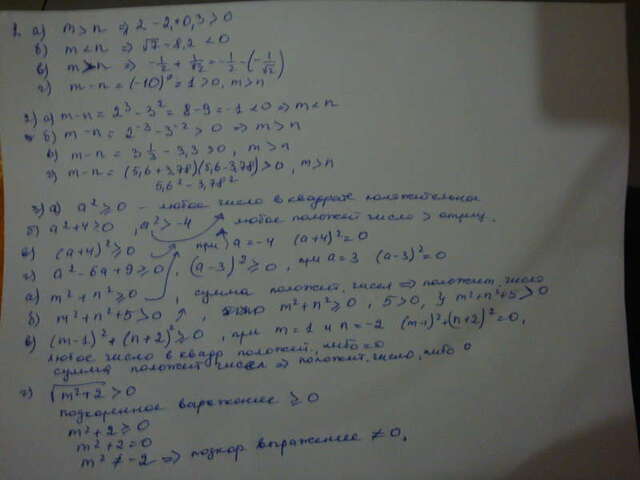 1. а) m > n ⇒ 2 - 2,+0,3 > 0
б) m < n ⇒ √7 - 8,2 < 0
в) m > n ⇒ -1/2 + 1/√2 = -1/2 - (-1/√2)
г) m - n = (-10)⁰ = 1 > 0, m > n
2) а) m - n = 2³ - 3² = 8 - 9 = -1 < 0 ⇒ m < n
б) m - n = 2⁻³ - 3⁻² > 0 ⇒ m > n
в) m - n = 3 1/3 - 3,3 > 0, m > n
г) m - n = (5,6 + 3,78)(5,6 - 3,78) > 0, m > n
5,6² - 3,78²
3) а) a² ≥ 0 - любое число в квадрате положительное
б) a² + 4 ≥ 0, a² > -4 любое положит число > отриц.
в) (a+4)² ≥ 0 при a = -4 (a+4)² = 0
г) a² - 6a + 9 ≥ 0, (a-3)² ≥ 0, при a = 3 (a-3)² = 0
а) m² + n² ≥ 0, сумма положит. чисел ⇒ положит. число
б) m² + n² + 5 > 0, m² + n² ≥ 0, 5 > 0, m² + n² + 5 > 0
в) (m-1)² + (n+2)² ≥ 0, при m = 1 и n = -2 (m-1)² + (n+2)² = 0,
любое число в квадр положит, либо = 0
сумма положит чисел ⇒ положит. число, либо 0
г) √m² + 2 > 0
подкоренное выражение ≥ 0
m² + 2 ≥ 0
m² + 2 = 0
m² ≠ -2 ⇒ подкор выражение ≠ 0.